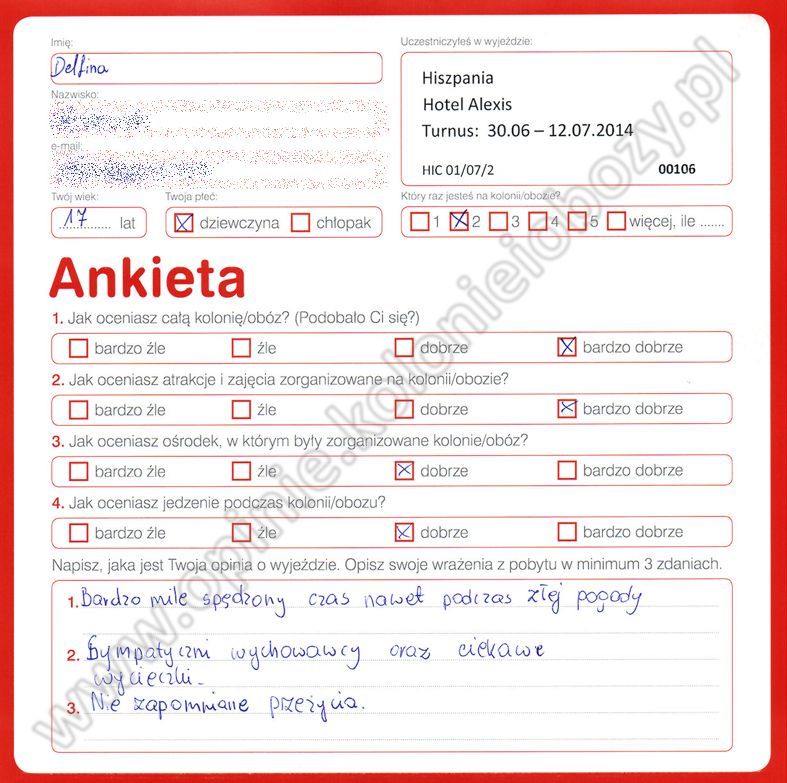 Imię:
Delfina
Nazwisko:
e-mail:
Twój wiek:
17 lat
Twoja płeć:
dziewczyna chłopak
Uczestniczyłeś w wyjeździe:
Hiszpania
Hotel Alexis
Turnus: 30.06 – 12.07.2014
HIC 01/07/2 00106
Który raz jesteś na kolonii/obozie?
1 2 3 4 5 więcej, ile .......
Ankieta
1. Jak oceniasz całą kolonię/obóz? (Podobało Ci się?)
bardzo źle źle dobrze bardzo dobrze
2. Jak oceniasz atrakcje i zajęcia zorganizowane na kolonii/obozie?
bardzo źle źle dobrze bardzo dobrze
3. Jak oceniasz ośrodek, w którym były zorganizowane kolonie/obóz?
bardzo źle źle dobrze bardzo dobrze
4. Jak oceniasz jedzenie podczas kolonii/obozu?
bardzo źle źle dobrze bardzo dobrze
Napisz, jaka jest Twoja opinia o wyjeździe. Opisz swoje wrażenia z pobytu w minimum 3 zdaniach.
1. Bardzo mile spędzony czas nawet podczas złej pogody
2. Sympatyczni wychowawcy oraz ciekawe
wycieczki.
3. Nie zapomniane przeżycia.
www.opinie.kolonieiobozy.pl